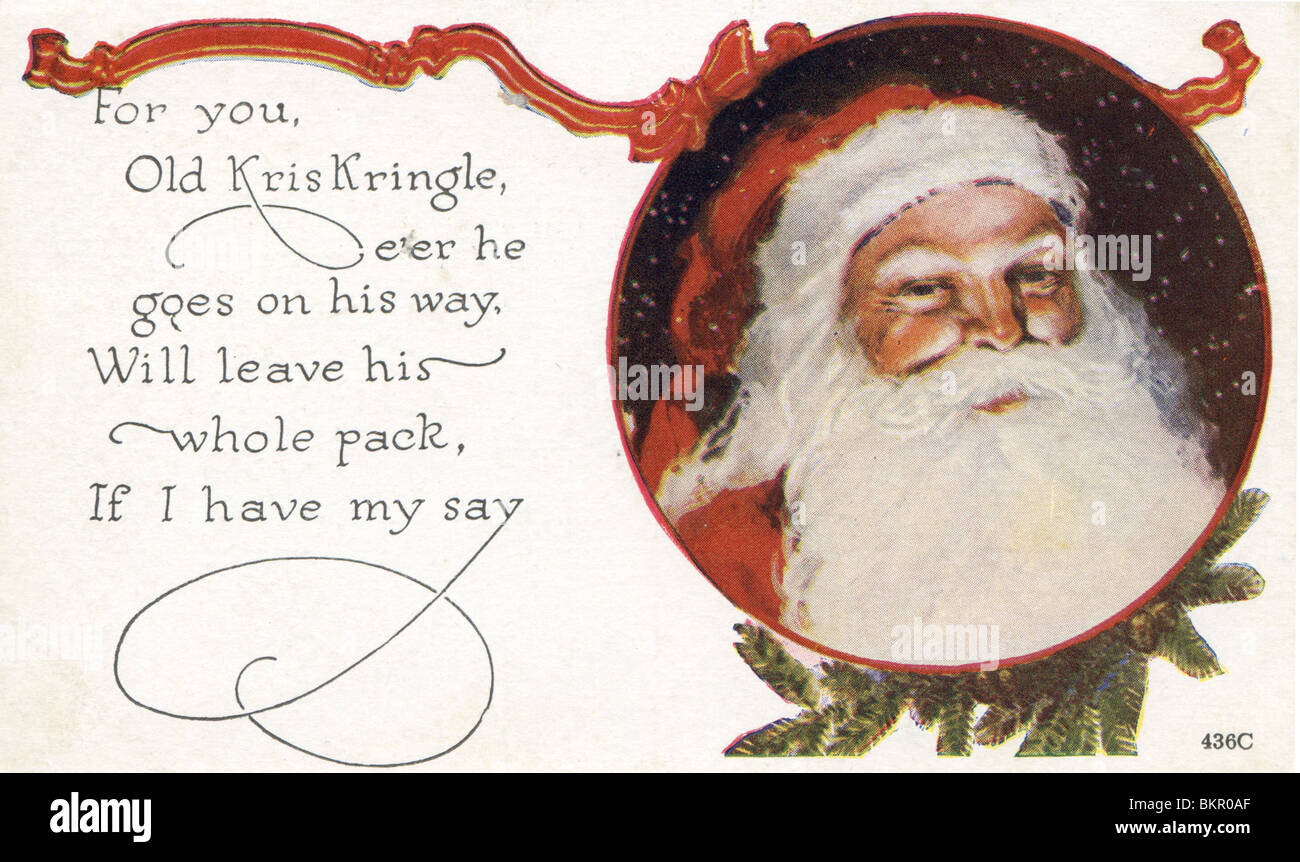 For you,
Old Kris Kringle,
e'er he
goes on his way,
Will leave his
whole pack,
If I have my say
436C
alamy
Image ID: BKR0AF
www.alamy.com